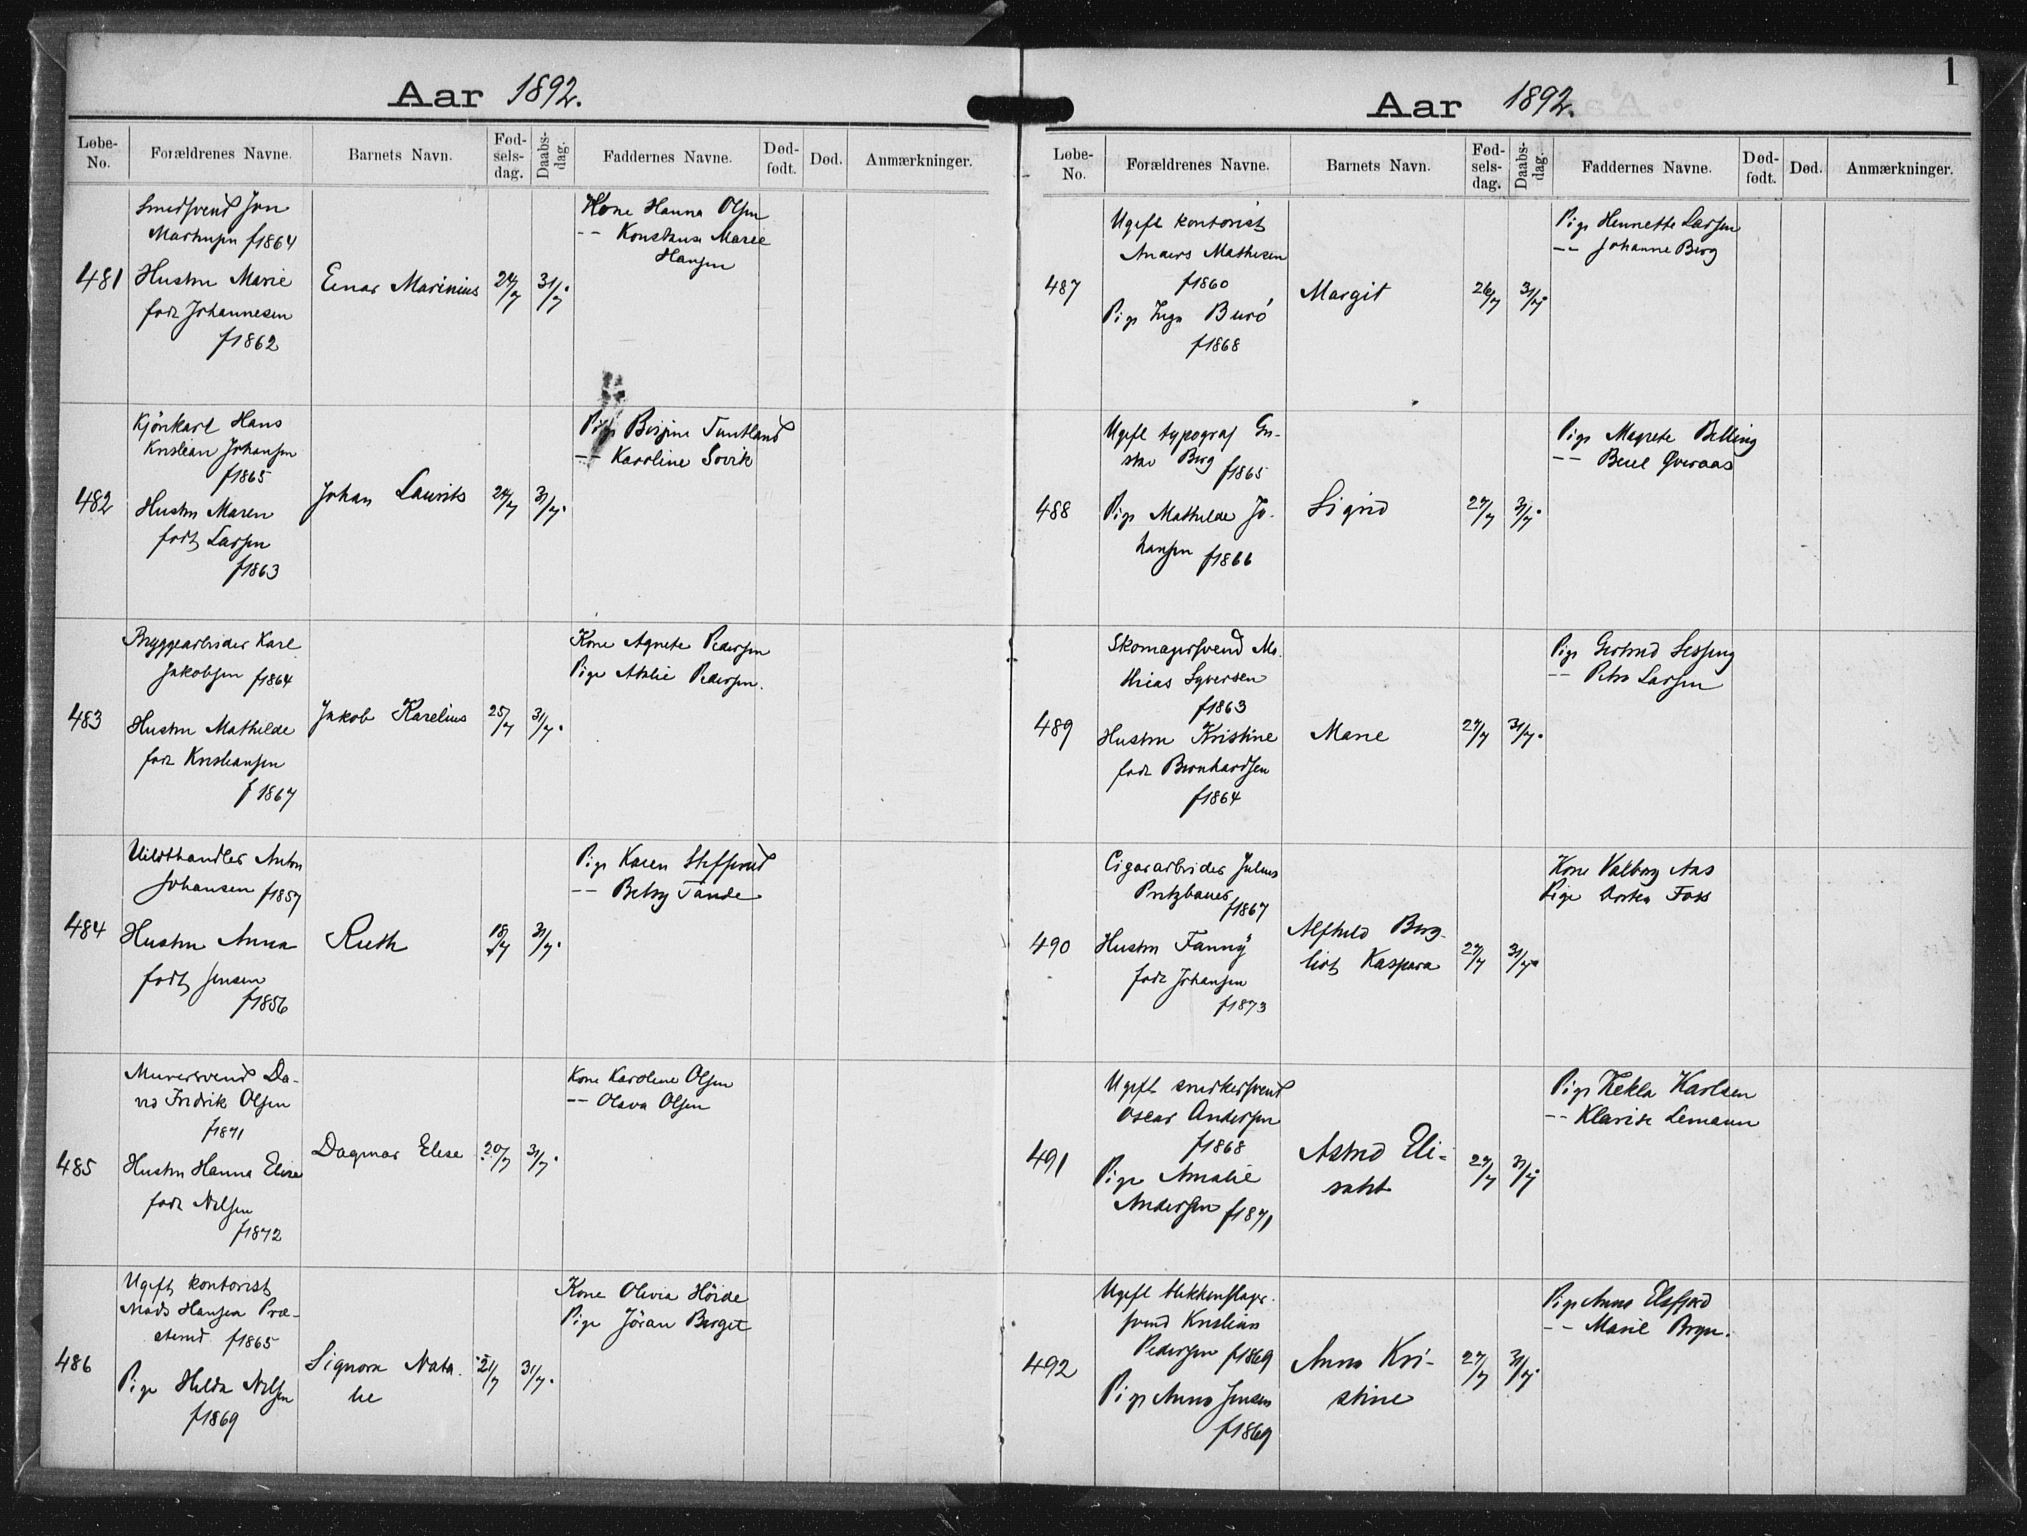 Aar 1892.
Løbe-No. Forældrenes Navne. Barnets Navn. Fødselsdag. Daabsdag. Faddernes Navne. Dødfødt. Død. Anmærkninger.
481
Smedsvend Jon
Martinsen f1864
Hustru Marie
født Johannesen
f1862
Einar Marinius
24/7
31/7.
Kone Hanna Olsen
-- Konstanse Marie
Hansen
482
Kjörekarl Hans
Kristian Johansen
f1865
Hustru Maren
født Larsen
f1863
Johan Laurits
24/7
31/7.
Pige Bergine Tuntland
-- Karoline Sovik
483
Bryggearbeider Karl
Jakobsen f1864
Hustru Mathilde
født Kristiansen
f1867
Jakob Karelius
25/7
31/7.
Kone Agnete Pedersen
Pige Atalie Pedersen.
484
Vildthandler Anton
Johansen f1857
Hustru Anna
født Jensen
f1856
Ruth
18/7
31/7.
Pige Karen
-- Betsy Tande
485
Murersvend Da-
vid Fredrik Olsen
f1871
Hustru Hanna Elise
født Nilsen
f1872
Dagmar Elise
20/7
31/7.
Kone Karoline Olsen
-- Olava Olsen
486
Ugift kontorist
Mads Hansen Præ-
sterud f1865
Pige Hilda Nilsen
f1869
Signora Nata-
lie
21/7
31/7.
Kone Olivia Höide
Pige Jöran Berget
Aar 1892.
1
Løbe-No. Forældrenes Navne. Barnets Navn. Fødselsdag. Daabsdag. Faddernes Navne. Dødfødt. Død. Anmærkninger.
487
Ugift kontorist
Anders Mathisen
f1860
Pige Inga Burö
f1868
Margit
26/7
31/7.
Pige Henriette Larsen
-- Johanne Berg
488
Ugift typograf Gu-
stav Berg f1865
Pige Mathilde Jo-
hansen f1866
Sigrid
27/7
31/7.
Pige Magrete Billing
-- Beret Qveraas
489
Skomagersvend Ma-
thias Syversen
f1863
Hustru Kristine
født Bernhardsen
f1864
Marie
27/7
31/7.
Pige Gertrud Lessing
-- Petra Larsen
490
Cigararbeider Julius
Pritzbauer
f1867
Hustru Fanny
født Johansen
f1873
Alfhild Berg-
liot Kaspara
27/7
31/7.
Kone Valborg Aas
Pige Dortea Foss
491
Ugift snedkersvend
Oscar Andersen
f1868
Pige Amalie
Andersen f1871
Astrid Eli-
sabet
27/7
31/7.
Pige Tekla Karlsen
-- Klarise Lemann
492
Ugift blikkenslager-
svend Kristian
Pedersen f1869
Pige Anna Jensen
f1869
Anna Kri-
stine
27/7
31/7.
Pige Anna Elsfjord
-- Marie Bryn.